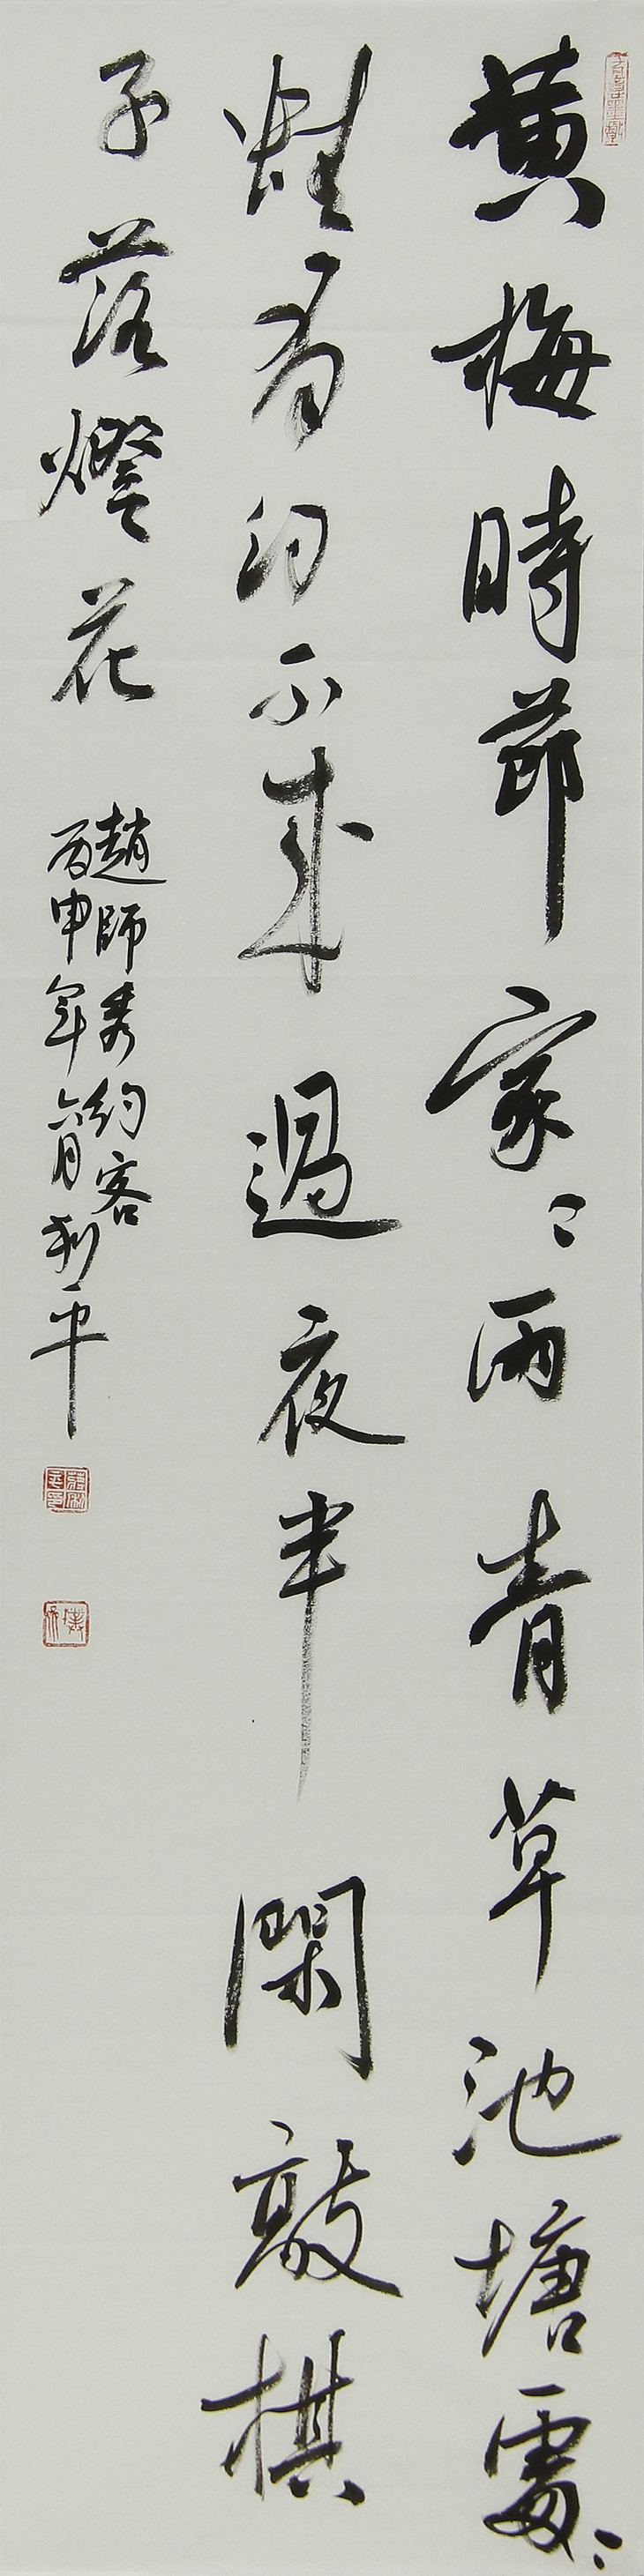 黄梅時節家〻雨青草池塘處〻
蛙有約不來過夜半閑敲棋
子落燈花
趙師秀約客
丙申年六月利平